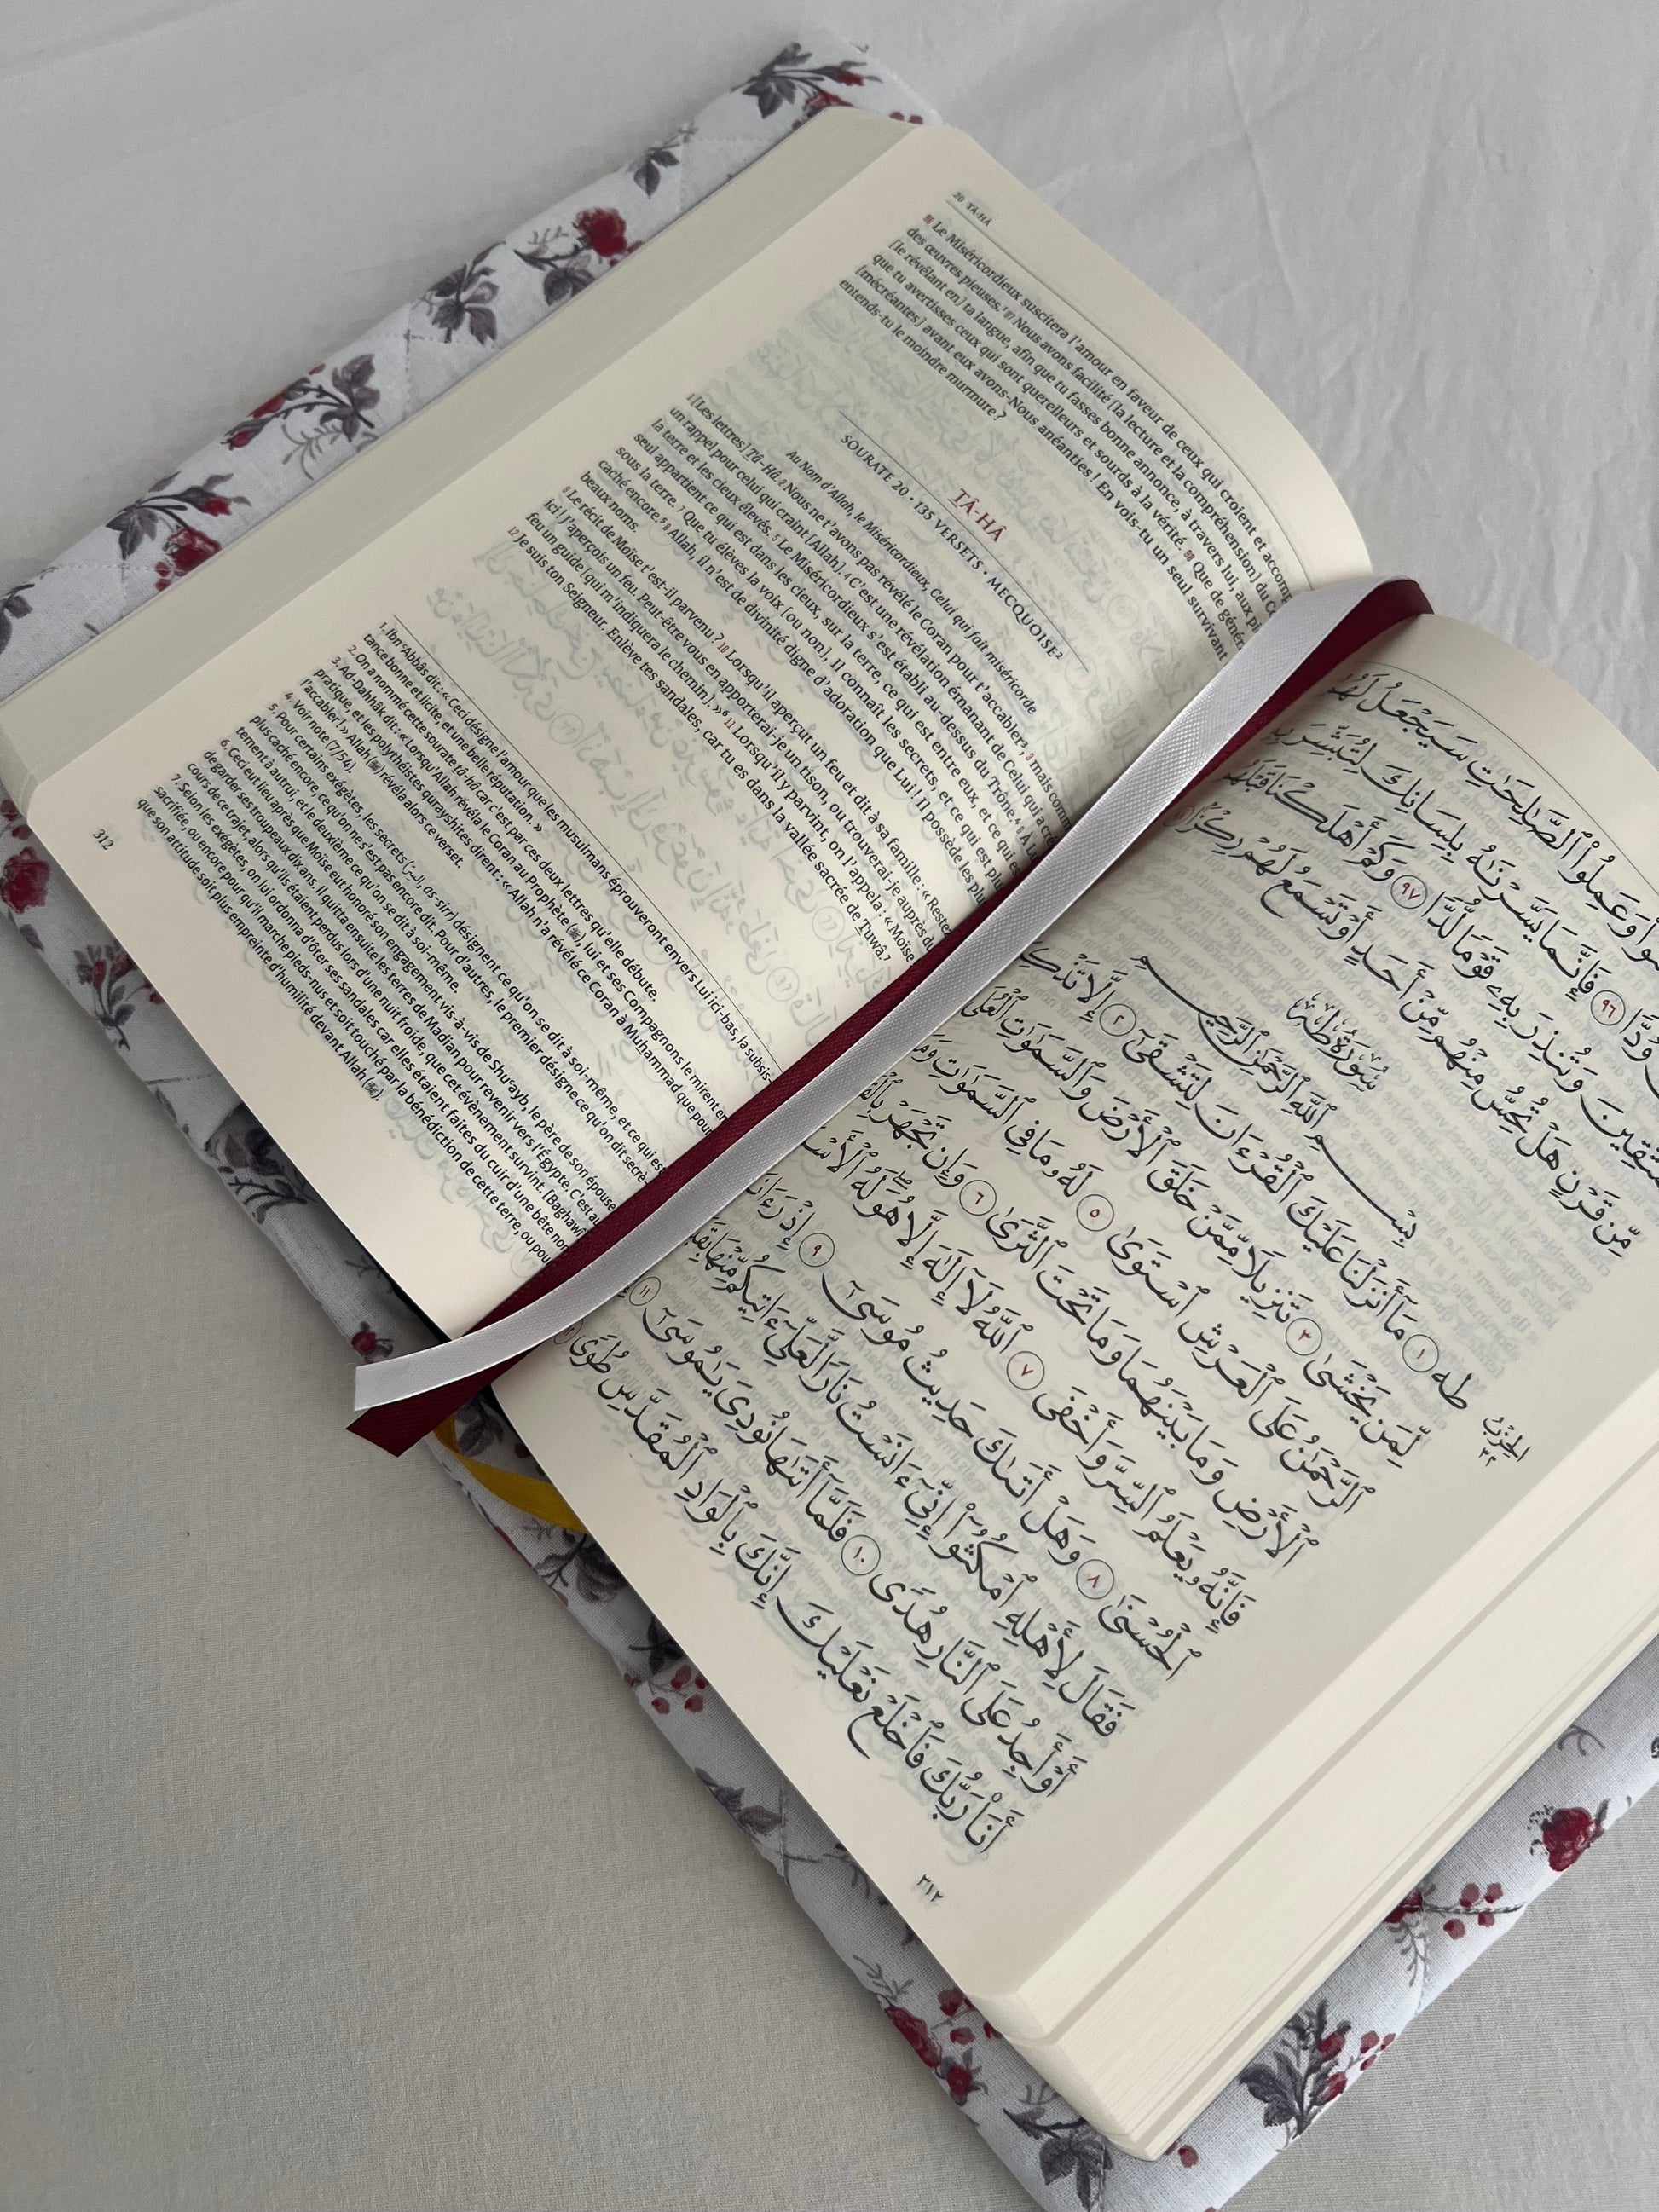 20 TÂ-HÂ
96 Le Miséricordieux suscitera l'amour en faveur de ceux qui croient et
des œuvres pieuses.¹ 97 Nous avons facilité [la lecture et la compréhension] du
[le révélant en] ta langue, afin que tu fasses bonne annonce, à travers lui, aux
que tu avertisses ceux qui sont querelleurs et sourds à la vérité. 98 Que de
[mécréantes] avant eux avons-Nous anéanties ! En vois-tu un seul survivant
entends-tu le moindre murmure ?
TÂ-HÂ
SOURATE 20 • 135 VERSETS • MECQUOISE²
Au Nom d'Allah, le Miséricordieux, Celui qui fait miséricorde
1 [Les lettres] Tâ-Hâ. 2 Nous ne t'avons pas révélé le Coran pour t'accabler³, 3 mais comme
un rappel pour celui qui craint [Allah]. 4 C'est une révélation émanant de Celui qui a créé
la terre et les cieux élevés. 5 Le Miséricordieux s'est établi au-dessus du Trône.⁴ 6 À
seul appartient ce qui est dans les cieux, sur la terre, ce qui est entre eux, et ce qui
sous la terre. 7 Que tu élèves la voix [ou non], Il connaît les secrets, et ce qui est plus
caché encore.⁵ 8 Allah, il n'est de divinité digne d'adoration que Lui ! Il possède les plus
beaux noms.
9 Le récit de Moïse t'est-il parvenu ? 10 Lorsqu'il aperçut un feu et dit à sa famille : « Restez
ici ! J'aperçois un feu. Peut-être vous en apporterai-je un tison, ou trouverai-je auprès du
feu un guide [qui m'indiquera le chemin]. »⁶ 11 Lorsqu'il y parvint, on l'appela : « Moïse
12 Je suis ton Seigneur. Enlève tes sandales, car tu es dans la vallée sacrée de Tuwâ.⁷
1. Ibn ʿAbbâs dit : « Ceci désigne l'amour que les musulmans éprouveront envers Lui ici-bas, la subsis-
tance bonne et licite, et une belle réputation. »
2. On a nommé cette sourate tâ-hâ car c'est par ces deux lettres qu'elle débute.
3. Ad-Dahhâk dit : « Lorsqu'Allah révéla le Coran au Prophète (ﷺ), lui et ses Compagnons le mirent en
pratique, et les polythéistes qurayshites dirent : « Allah n'a révélé ce Coran à Muhammad que pour
l'accabler ! » Allah révéla alors ce verset.
4. Voir note (7/54).
5. Pour certains exégètes, les secrets (السر, as-sirr) désignent ce qu'on se dit à soi-même, et ce qui est
plus caché encore, ce qu'on ne s'est pas encore dit. Pour d'autres, le premier désigne ce qu'on dit secrè-
tement à autrui, et le deuxième ce qu'on se dit à soi-même.
6. Ceci eut lieu après que Moïse eut honoré son engagement vis-à-vis de Shuʿayb, le père de son épouse
de garder ses troupeaux dix ans. Il quitta ensuite les terres de Madian pour revenir vers l'Égypte. C'est au
cours de ce trajet, alors qu'ils étaient perdus lors d'une nuit froide, que cet évènement survint. [Baghawî
7. Selon les exégètes, on lui ordonna d'ôter ses sandales car elles étaient faites du cuir d'une bête non
sacrifiée, ou encore pour qu'il marche pieds-nus et soit touché par la bénédiction de cette terre, ou pour
que son attitude soit plus empreinte d'humilité devant Allah
312
وَعَمِلُوا۟ ٱلصَّٰلِحَٰتِ سَيَجْعَلُ لَهُمُ
وُدًّا ٩٦ فَإِنَّمَا يَسَّرْنَٰهُ بِلِسَانِكَ لِتُبَشِّرَ بِهِ
ٱلْمُتَّقِينَ وَتُنذِرَ بِهِۦ قَوْمًا لُّدًّا ٩٧ وَكَمْ أَهْلَكْنَا قَبْلَهُم
مِّن قَرْنٍ هَلْ تُحِسُّ مِنْهُم مِّنْ أَحَدٍ أَوْ تَسْمَعُ لَهُمْ رِكْزًۢا
سُورَةُ طه
بِسْمِ ٱللَّهِ ٱلرَّحْمَٰنِ ٱلرَّحِيمِ
طه ١ مَآ أَنزَلْنَا عَلَيْكَ ٱلْقُرْءَانَ لِتَشْقَىٰٓ ٢ إِلَّا تَذْكِرَةً
لِّمَن يَخْشَىٰ ٣ تَنزِيلًا مِّمَّنْ خَلَقَ ٱلْأَرْضَ وَٱلسَّمَٰوَٰتِ ٱلْعُلَى
ٱلرَّحْمَٰنُ عَلَى ٱلْعَرْشِ ٱسْتَوَىٰ ٥ لَهُۥ مَا فِى ٱلسَّمَٰوَٰتِ وَمَا فِى
ٱلْأَرْضِ وَمَا بَيْنَهُمَا وَمَا تَحْتَ ٱلثَّرَىٰ ٦ وَإِن تَجْهَرْ بِٱلْقَوْلِ
فَإِنَّهُۥ يَعْلَمُ ٱلسِّرَّ وَأَخْفَى ٧ ٱللَّهُ لَآ إِلَٰهَ إِلَّا هُوَ لَهُ ٱلْأَسْمَآءُ
ٱلْحُسْنَىٰ ٨ وَهَلْ أَتَىٰكَ حَدِيثُ مُوسَىٰٓ ٩ إِذْ رَءَا نَارًا
فَقَالَ لِأَهْلِهِ ٱمْكُثُوٓا۟ إِنِّىٓ ءَانَسْتُ نَارًا لَّعَلِّىٓ ءَاتِيكُم مِّنْهَا بِقَبَسٍ
أَوْ أَجِدُ عَلَى ٱلنَّارِ هُدًى ١٠ فَلَمَّآ أَتَىٰهَا نُودِىَ يَٰمُوسَىٰٓ ١١ إِنِّىٓ
أَنَا۠ رَبُّكَ فَٱخْلَعْ نَعْلَيْكَ إِنَّكَ بِٱلْوَادِ ٱلْمُقَدَّسِ طُوًى
الحزب
٣٢
٣١٢